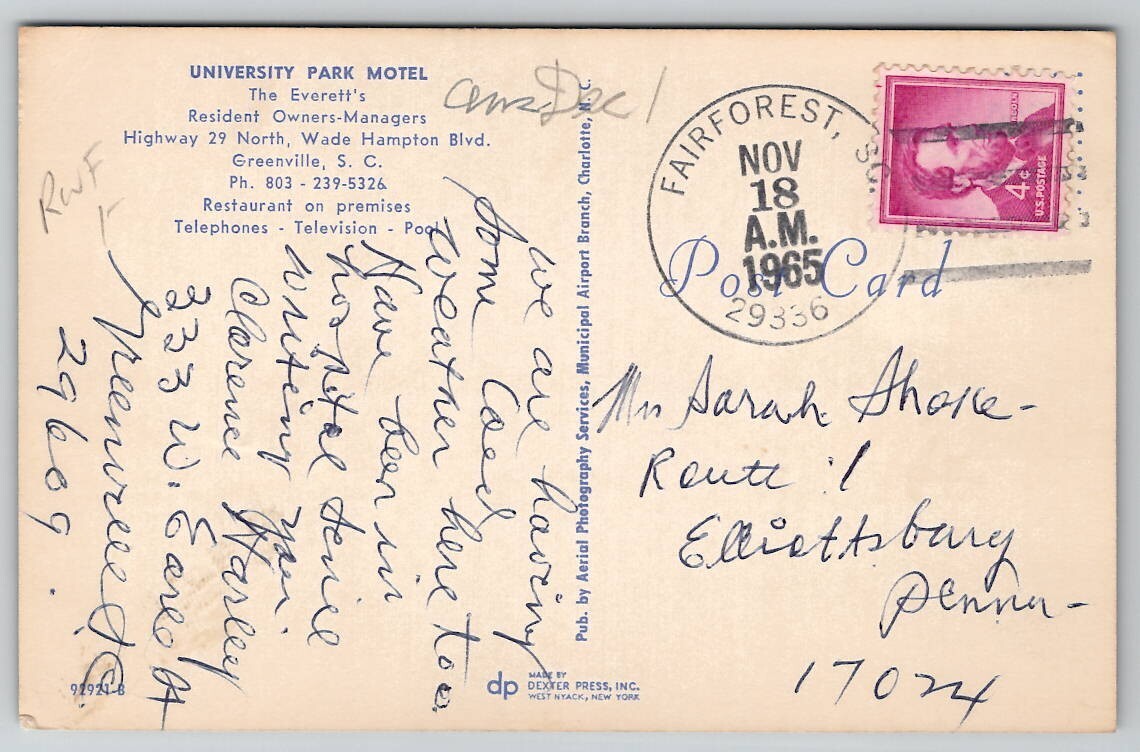 UNIVERSITY PARK MOTEL
The Everett's
Resident Owners-Managers
Highway 29 North, Wade Hampton Blvd.
Greenville, S. C.
Ph. 803 - 239-5326
Restaurant on premises
Telephones - Television - Pool
ans. Dec 1
we are having
some Cold
weather here too
Have been in
hospital
writing you.
Clarence Harley
333 W. Earle St
Greenville S.C.
29609.
92921-B
Pub. by Aerial Photography Services, Municipal Airport Branch, Charlotte, N. C.
dp
MADE BY
DEXTER PRESS, INC.
WEST NYACK, NEW YORK
FAIRFOREST, S.C.
NOV
18
A.M.
1965
29336
LINCOLN
4¢
U.S. POSTAGE
Post Card
Mrs Sarah
Route 1
Elliottsburg
Penna-
17024